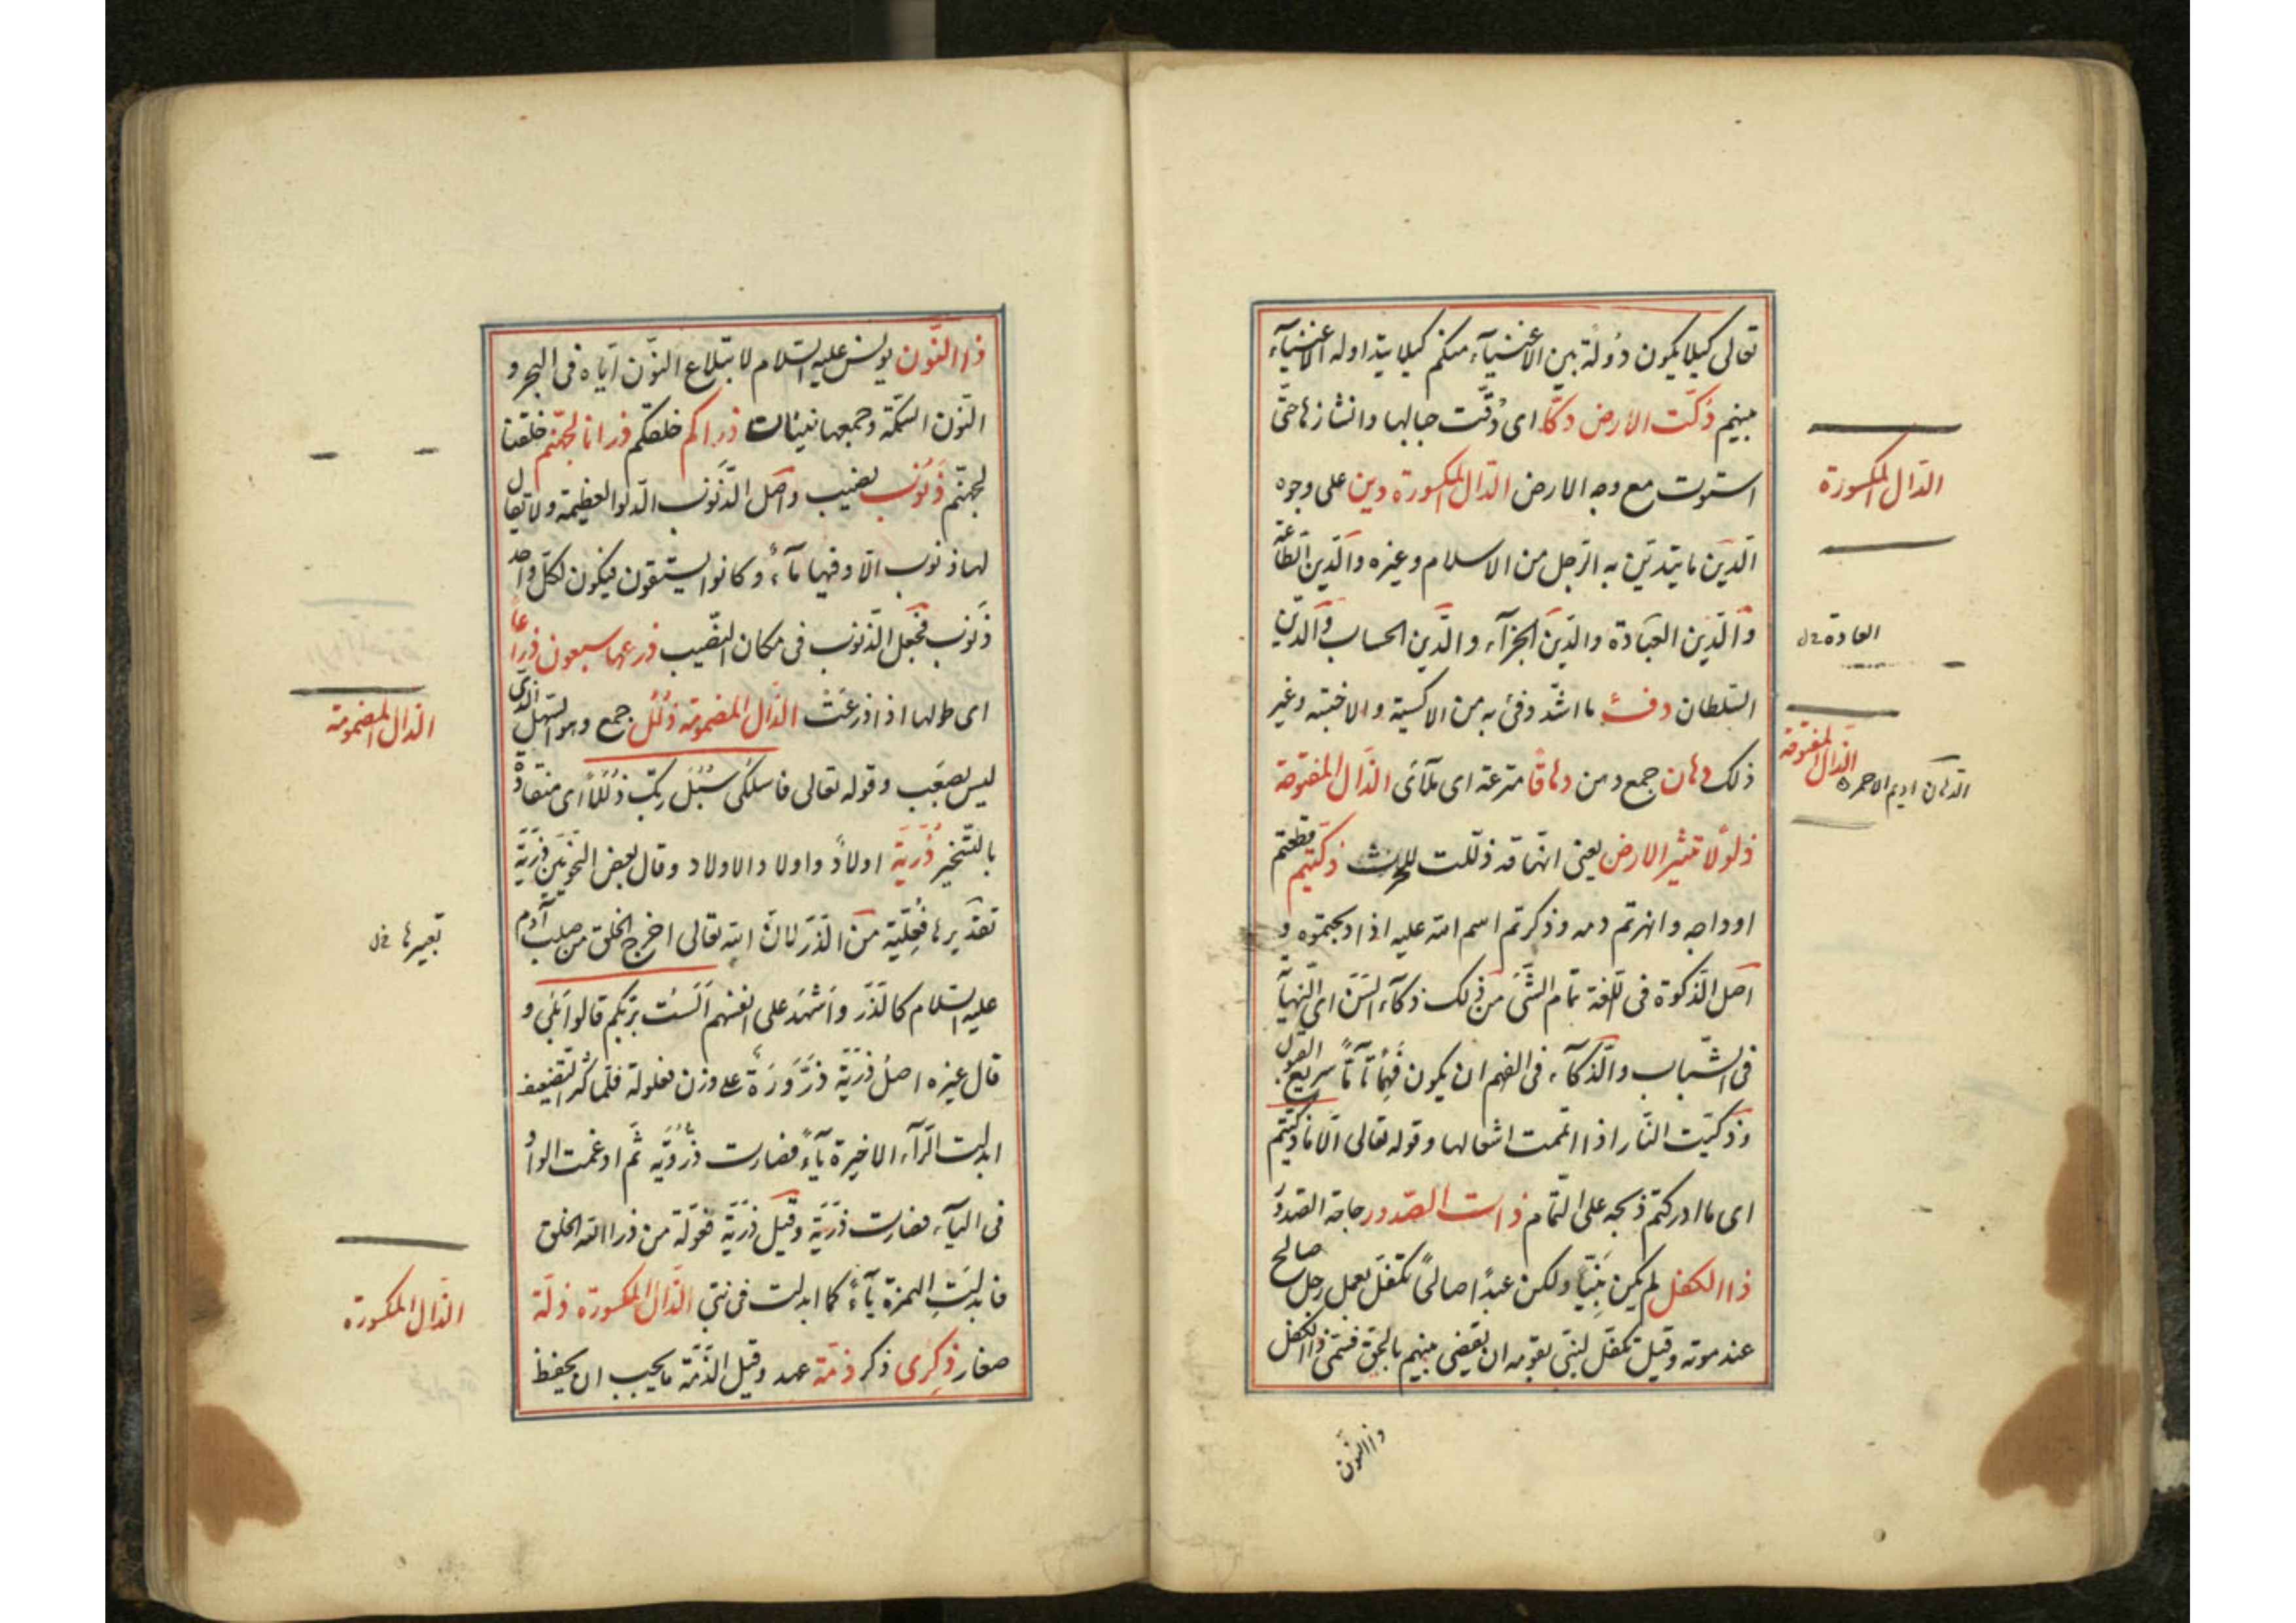 تعالى كيلا يكون دُولة بين الاغنيآء منكم كيلا يتداوله الاغنيآء
بينهم دُكّت الارض دكّا اى دُقّت جبالها وانشازها حتّى
استوت مع وجه الارض الدّال المكسورة دين على وجوه
الدّين ما يتديّن به الرّجل من الاسلام وغيره والدّين الطّاعة
والدّين العبادة والدّين الجزآء والدّين الحساب والدّين
السّلطان دفء ما استدفئ به من الاكسية والاخبية وغير
ذلك دهان جمع دهن دهاقا مترعة اى ملآى الذّال المفتوحة
ذلولٌ لا تثير الارض يعنى انّها قد ذلّلت للحرث ذكّيتم قطعتم
اوداجه وانهرتم دمه وذكرتم اسم الله عليه اذا ذبحتموه و
اصل الذّكوة فى اللّغة تمام الشّئ من ذلك ذكآء السّنّ اى النّهاية
فى الشّباب والذّكآء فى الفهم ان يكون فهمًا تآمًّا سريع القبول
وذكّيت النّار اذا اتممت اشعالها وقوله تعالى الّا ما ذكّيتم
اى ما ادركتم ذبحه على التّمام ذات الصّدور حاجة الصّدور
ذا الكفل لم يكن نبيّا ولكن عبدًا صالحًا تكفّل بعمل رجل صالح
عند موته وقيل تكفّل لنبىّ بقومه ان يقضى بينهم بالحقّ فسُمّى ذا الكفل
ذا النّون
الدّال المكسورة
العادة
الذّال المفتوحة
الدّهان اديم الاحمر
ذا النّون يونس عليه السّلام لابتلاع النّون ايّاه فى البحر و
النّون السّمكة وجمعها نينان ذراكم خلقكم ذرانا لجهنّم خلقنا
لجهنّم ذَنُوب نصيب واصل الذّنُوب الدّلو العظيمة ولا يقال
لها ذنوب الّا وفيها مآءٌ وكانوا يستقون فيكون لكلّ واحد
ذَنُوب فجعل الذّنوب فى مكان النّصيب ذرعها سبعون ذراعًا
اى طولها اذا ذرعَتْ الذّال المضمومة ذُلُل جمع وهو السّهل الّذى
ليس بصعب وقوله تعالى فاسلكى سُبُلَ ربّك ذُلُلًا اى منقادة
بالتّسخير ذُرّيّة اولادٌ واولاد الاولاد وقال بعض النحويّين ذُرّيّة
تقديرها فُعليّة من الذّرّ لانّ الله تعالى اخرج الخلق من صلب آدم
عليه السّلام كالذّرّ واَشْهَدَ على انفسهم اَلَسْت بربّكم قالوا بَلى و
قال غيره اصل ذُرّيّة ذُرُّورَة على وزن فعلولة فلمّا كثر التّضعيف
ابدلت الرّآء الاخيرة يآءً فصارت ذُرُّويَه ثمّ ادغمت الواو
فى اليآء فصارت ذُرّيّة وقيل ذُرّيّة فعّولة من ذرا الله الخلق
فابدلَتِ الهمزة يآءً كما ابدلت فى نبىّ الذّال المكسورة ذلّة
صغار ذِكرى ذكر ذمّة عهد وقيل الذّمّة ما يجب ان يحفظ
الذّال المضمومة
الذّال المكسورة